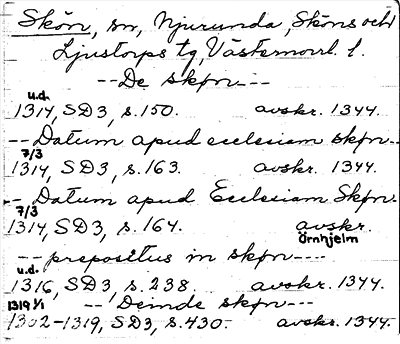 Skön, sn, Njurunda, Sköns och
Ljustorps tg, Västernorrl. l.
--De skøn---
u.d.
1314, SD3, s.150. avskr. 1344.
--Datum apud ecclesiam skøn--
7/3
1314, SD3, s.163. avskr. 1344.
-- Datum apud Ecclesiam Skøn.
7/3
1314, SD3, s.164. avskr.
Örnhjelm
--prepositus in skøn----
u.d.
1316, SD3, s.238. avskr. 1344.
1319 1/1 --Deinde skøn---
1302-1319, SD3, s.430. avskr. 1344.